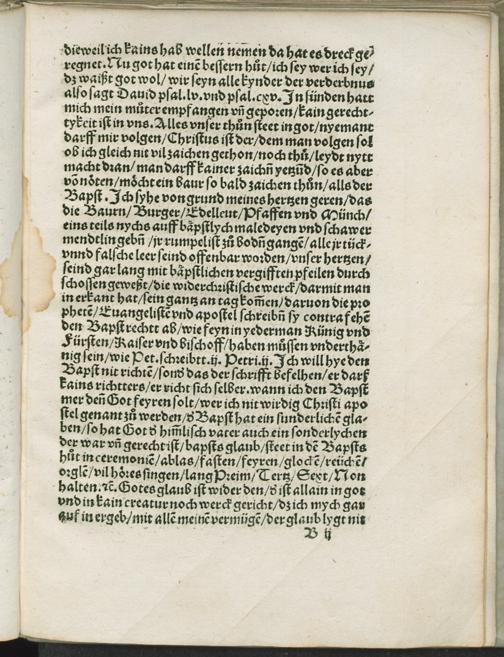 dieweil ich kains hab wellen nemen da hat es dreck ge⸗
regnet. Nu got hat einē bessern hůt/ ich sey wer ich sey/
dz waißt got wol/ wir seyn alle kynder der verderbnus
also sagt Dauid psal. lv. vnd psal. cxv. In sünden hatt
mich mein můter empfangen vñ geporen/ kain gerecht⸗
tykeit ist in vns. Alles vnser thůn steet in got/ nyemant
darff mir volgen/ Christus ist der/ dem man volgen sol
ob ich gleich nit vil zaichen gethon/ noch thů/ leydt nytt
macht dran/ man darff kainer zaichñ yetzūd/ so es aber
võ nöten/ möcht ein baur so bald zaichen thůn/ alls der
Bapst. Ich syhe von grund meines hertzen geren/ das
die Baurn/ Burger/ Edelleut/ Pfaffen vnd Münch/
eins teils nychs auff bäpstlych maledeyen vnd schawer
mendtlin gebñ/ jr rumpelist zů bodñ gangē/ alle jr tück⸗
vnnd falsche leer seind offenbar worden/ vnser hertzen/
seind gar lang mit bäpstlichen vergifften pfeilen durch
schossen geweßt/ die widerchristische werck/ darmit man
in erkant hat/ sein gantz an tag kom̄en/ daruon die pro
phetē/ Euangelistē vnd apostel schreibñ sy contrafehē
den Bapst rechtt ab/ wie feyn in yederman Künig vnd
Fürsten/ Kaiser vnd bischoff/ haben müssen vnderthä⸗
nig sein/ wie Pet. schreibtt. ij. Petri. ij. Ich will hye den
Bapst nit richtē/ sonð das der schrifft befelhen/ er darf
kains richtters/ er richt sich selber. wann ich den Bapst
mer deñ Got feyren solt/ wer ich nit wirdig Christi apo
stel genant zů werden/ ð Bapst hat ein sunderlichē gla⸗
ben/ so hat Got ð him̄lisch vater auch ein sonderlychen
der war vñ gerecht ist/ bapsts glaub/ steet in dē Bapsts
hůt in ceremoniē/ ablas/ fasten/ feyren/ glockē/ reüchē/
orglē/ vil hōres singen/ lang Preim/ Tertz/ Sext/ Non
halten. ꝛc. Gotes glaub ist wider den/ ð ist allain in got
vnd in kain creatur noch werck gericht/ dz ich mych gan
tz uf in ergeb/ mit allē meinē vermügē/ der glaub lygt nit
B ij